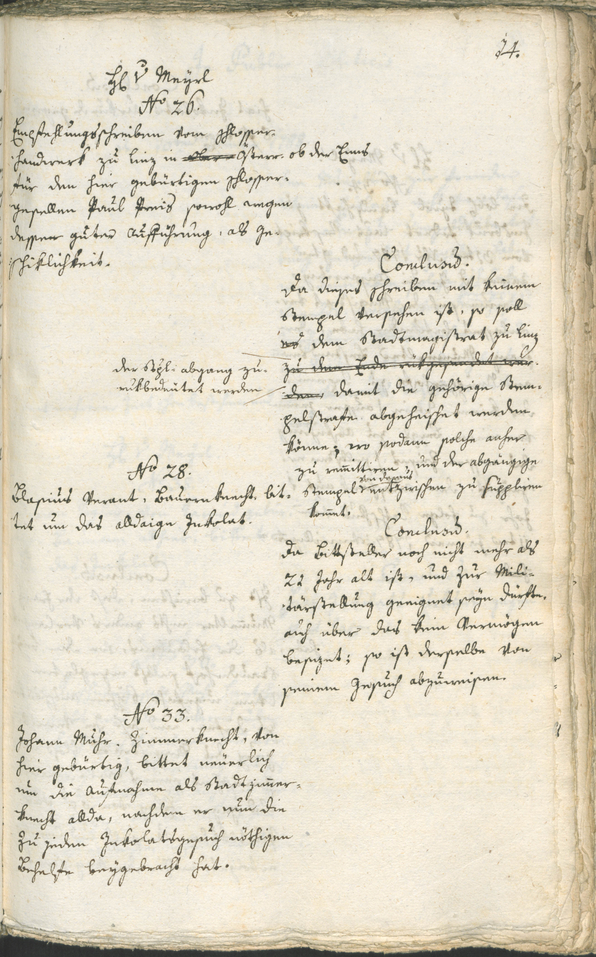 24.
H v Meyrl
No 26.
Empfehlungsschreiben vom Schlosser-
handwerk zu Linz in Ober Österr. ob der Enns
für den hier gebürtigen Schlosser-
gesellen Paul Preis sowohl wegen
dessen guter Aufführung, als Ge-
schiklichkeit.
Conclus.
Da dieses Schreiben mit keinem
Stempel versehen ist, so soll
es dem Stadtmagistrat zu Linz
zu dem Ende rükgesendet wer-
den, damit die gehörige Stem-
pelstrafe abgeheischet werden
könne; wo sodann solche anher
zu remittiren, und der abgängige
Stempel von daraus zu suppliren
kommt.
der Stpl. abgang zu-
rukbedeutet werden
No 28.
Blasius Verant, Bauernknecht, bit-
tet um das alldaige Inkolat.
Conclus.
Da Bittsteller noch nicht mehr als
22 Jahr alt ist, und zur Mili-
tärstellung geeignet seyn dürfte,
auch über das kein Vermögen
besizet; so ist derselbe von
seinem Gesuch abzuweisen.
No 33.
Johann Muhr, Zimmerknecht, von
hier gebürtig, bittet neuerlich
um die Aufnahme als Stadtzimmer-
knecht allda, nachdem er nun die
zu jedem Inkolatsgesuch nöthigen
Behelfe beygebracht hat.